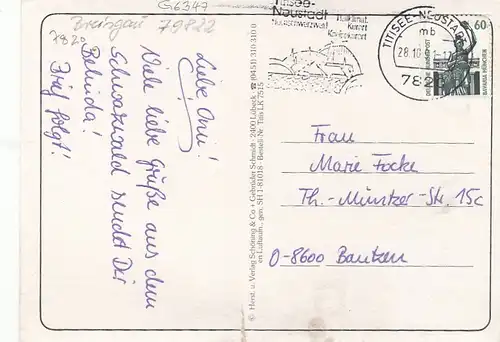 G6347
Breisgau 79822
7820
Liebe Omi!
Viele liebe Grüße aus dem
Schwarzwald sendet Dir
Belinda!
Brief folgt!
Titisee-
Neustadt
Heilklimat.
Kurort
Hochschwarzwald
Kneippkurort
TITISEE-NEUSTADT
mb
28.10.
782
60
DEUTSCHE BUNDESPOST
BAVARIA MÜNCHEN
© Herst. u. Verlag Schöning & Co + Gebrüder Schmidt · 2400 Lübeck ☎ (0451) 310 310 0
en Luftaufn., gen. SH 1-81018 - Bestell-Nr. Titis LK 7515
Frau
Marie Focke
Th.-Müntzer-Str. 15c
O-8600 Bautzen